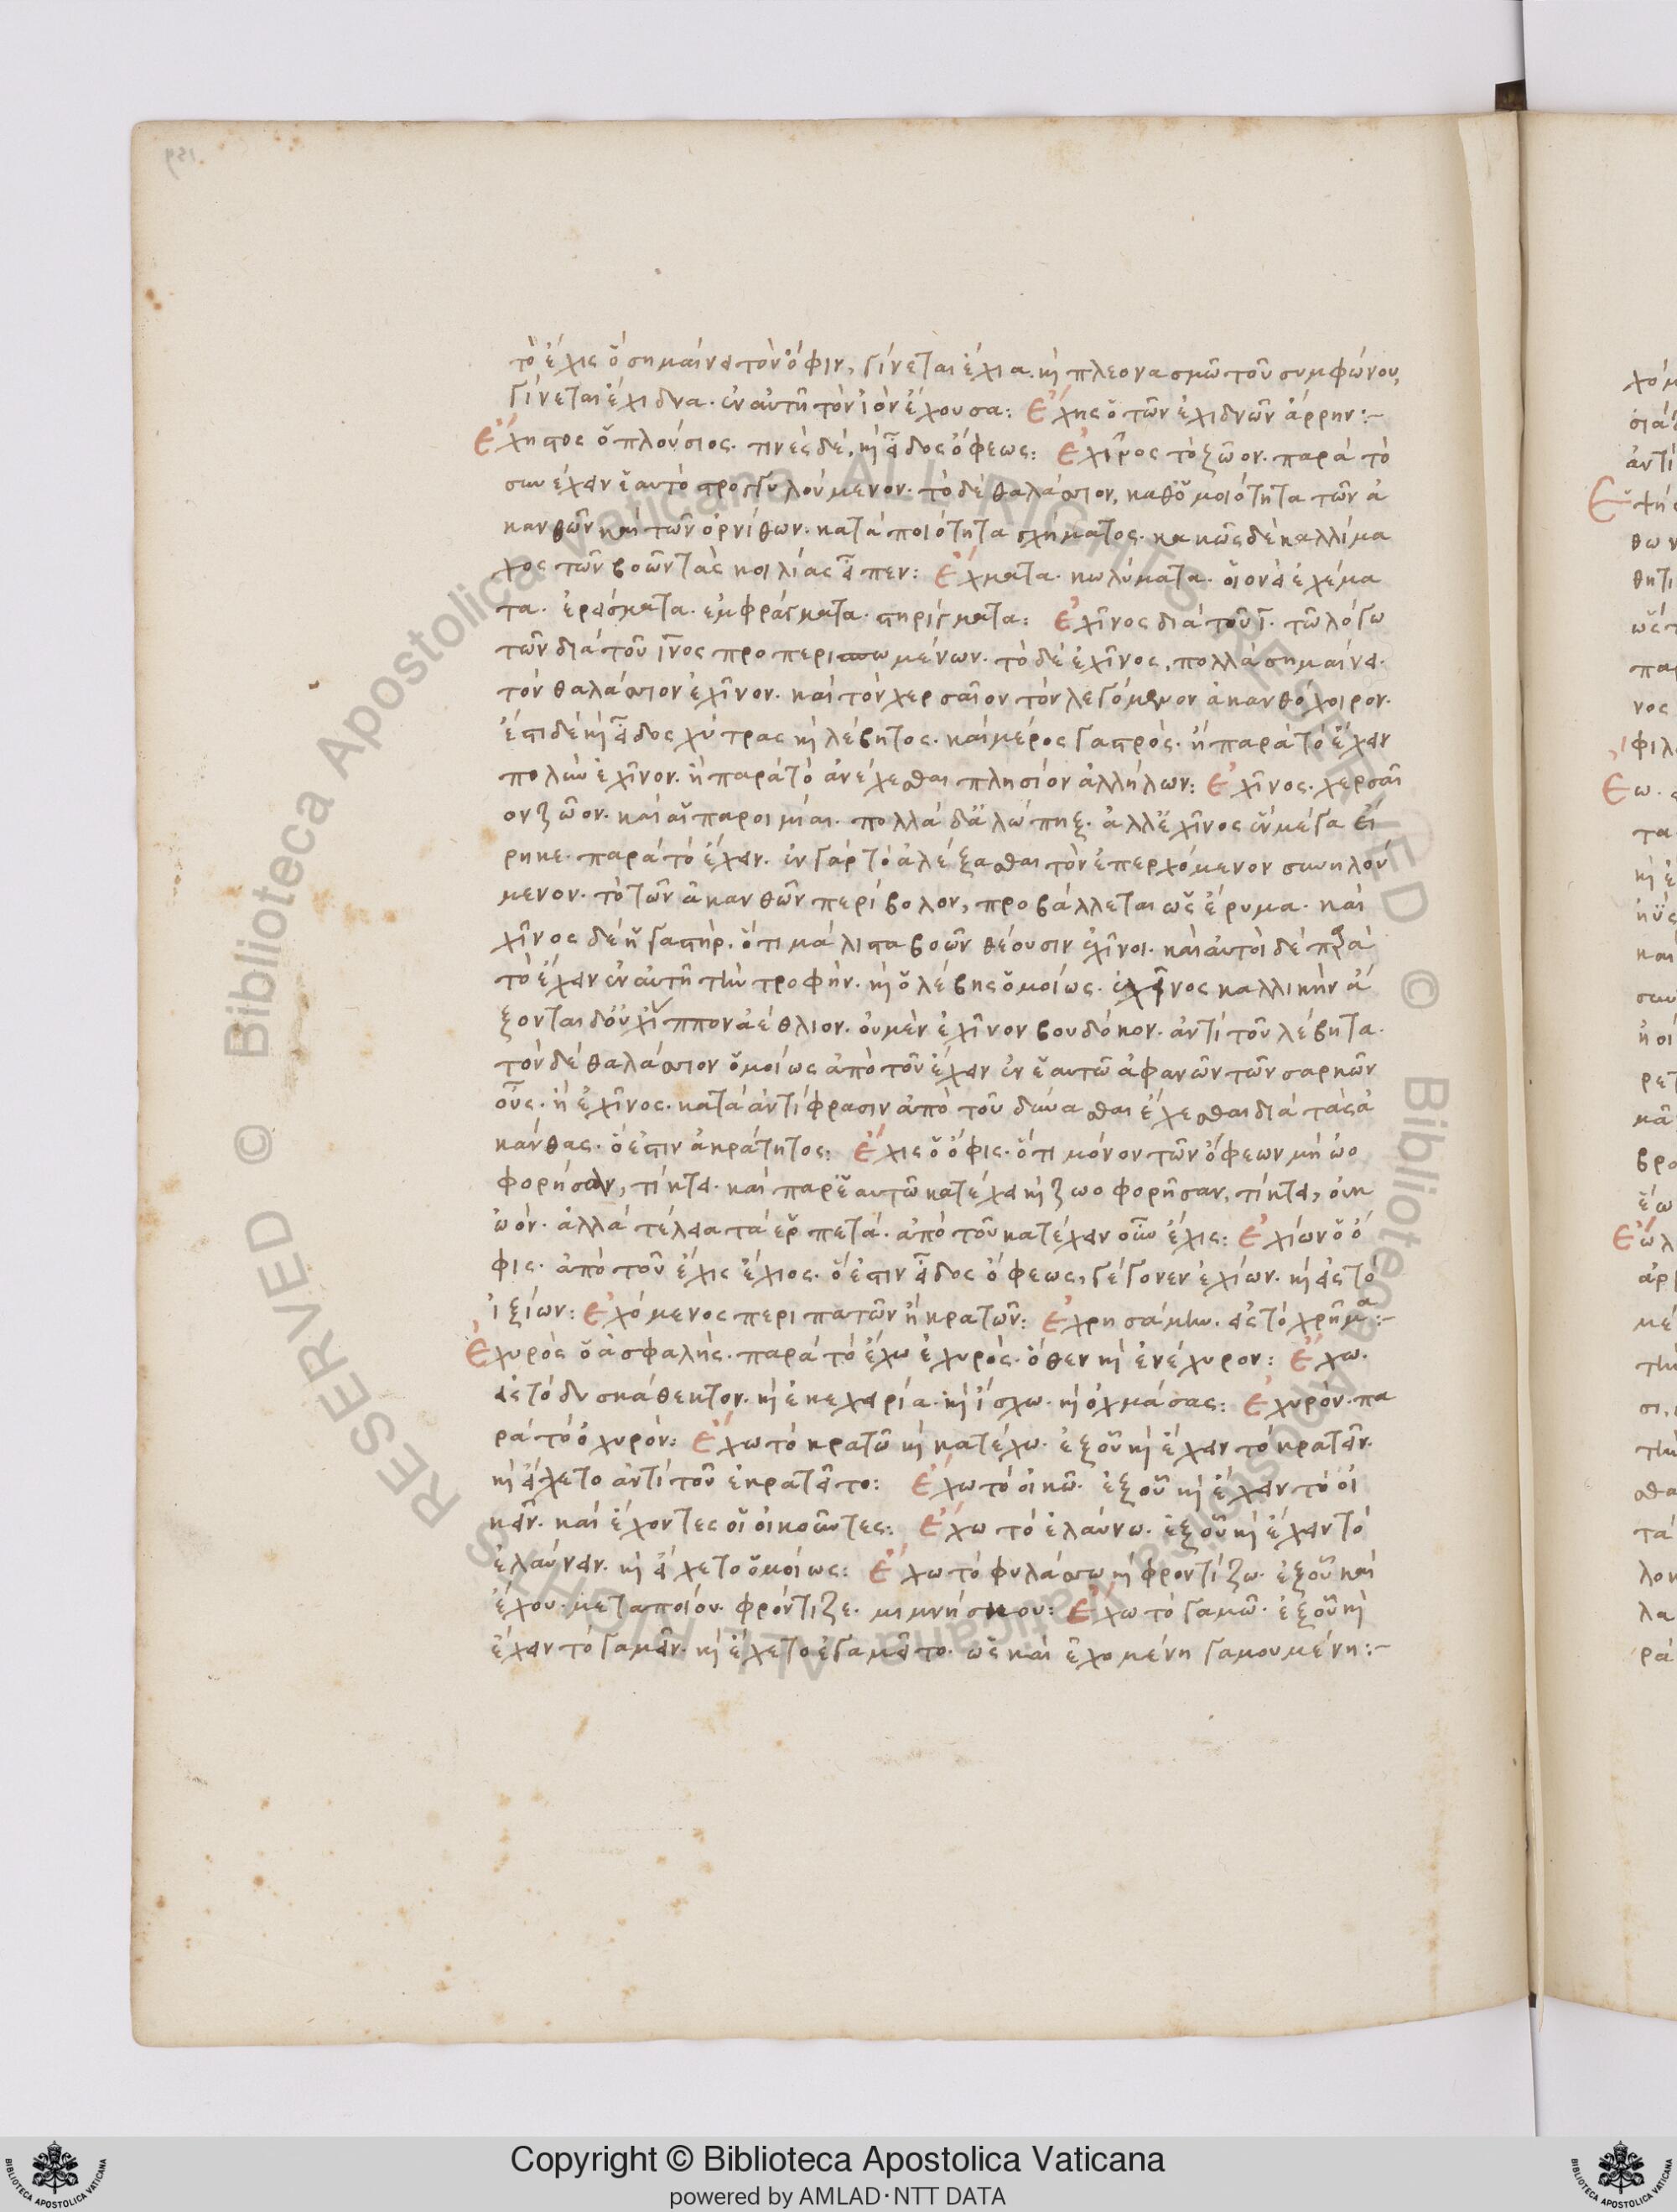 τὸ ἔχις ὃ σημαίνει τὸν ὄφιν, γίνεται ἔχια. κỳ πλεονασμῶ τοῦ συμφώνου,
γίνεται ἔχιδνα. ἐν αὐτῆ τὸν ἰὸν ἔχουσα: Ἔχης ὁ τῶν ἐχιδνῶν ἄρρην:~
Ἔχητος ὁ πλούσιος. τινὲς δὲ, κỳ εἶδος ὄφεως: Ἐχῖνος τὸ ζῶον. παρὰ τὸ
συνέχειν ἑαυτὸ στρογγυλούμενον. τὸ δὲ θαλάσσιον, καθ' ὁμοιότητα τῶν ἀ
κανθῶν καὶ τῶν ὀρνίθων. κατὰ ποιότητα σχήματος. κακῶς δὲ καλλίμα
χος τῶν βοῶν τὰς κοιλίας εἶπεν: Ἔχματα. κωλύματα. οἱονεὶ ἐχέμα
τα. ἐρείσματα. ἐμφράγματα. στηρίγματα: Ἐχῖνος διὰ τοῦ ῑ. τῶ λόγω
τῶν διὰ τοῦ ῖνος προπερισπωμένων. τὸ δὲ ἐχῖνος, πολλὰ σημαίνει.
τὸν θαλάσσιον ἐχῖνον. καὶ τὸν χερσαῖον τὸν λεγόμενον ἀκανθόχοιρον.
ἔστι δὲ κỳ εἶδος χύτρας κỳ λέβητος. καὶ μέρος γαστρός. ἢ παρὰ τὸ ἔχειν
πολὺν ἐχῖνον. ἢ παρὰ τὸ ἀνέχεσθαι πλησίον ἀλλήλων: Ἐχῖνος. χερσαῖ
ον ζῶον. καὶ αἱ παροιμίαι. πολλὰ δ' ἀλώπηξ. ἀλλ' ἐχῖνος ἓν μέγα εἴ
ρηκε. παρὰ τὸ ἔχειν. ἐν γὰρ τὸ ἀλέξασθαι τὸν ἐπερχόμενον συνηλού
μενον. τὸ τῶν ἀκανθῶν περίβολον, προβάλλεται ὡς ἔρυμα. καὶ
χῖνος δὲ ἡ γαστὴρ. ὅτι μάλιστα βοῶν θέουσιν ἐχῖνοι. καὶ αὐτοὶ δὲ παρὰ
τὸ ἔχειν ἐν αὐτῆ τὴν τροφὴν. κỳ ὁ λέβης ὁμοίως. ἐχῖνος καλλικὴν ἄ
ξονται δ' οὐχ ἵππον ἀέθλιον. οὐ μὲν ἐχῖνον βουδόκον. ἀντὶ τοῦ λέβητα.
τὸν δὲ θαλάσσιον ὁμοίως ἀπὸ τοῦ ἔχειν ἐν ἑαυτῶ ἀφανῶν τῶν σαρκῶν
οὓς. ἢ ἐχῖνος. κατὰ ἀντίφρασιν ἀπὸ τοῦ δύνασθαι ἔχεσθαι διὰ τὰς ἀ
κάνθας. ὅ ἐστιν ἀκράτητος: Ἔχις ὁ ὄφις. ὅτι μόνον τῶν ὄφεων μὴ ὠο
φορήσαν, τίκτει. καὶ παρ' ἑαυτῶ κατέχει κỳ ζωοφορῆσαν, τίκτει, οὐκ
ὠόν. ἀλλὰ τέλεια τὰ ἑρπετά. ἀπὸ τοῦ κατέχειν οὖν ἔχις: Ἐχίων ὁ ὄ
φις. ἀπὸ τοῦ ἔχις ἔχιος. ὅ ἐστιν εἶδος ὄφεως, γέγονεν ἐχίων. κỳ εἰς τὸ
ἰξίων: Ἐχόμενος περιπατῶν ἢ κρατῶν: Ἐχρησάμην. εἰς τὸ χρῆμα:~
Ἐχυρὸς ὁ ἀσφαλής. παρὰ τὸ ἔχω ἐχυρός. ὅθεν κỳ ἐνέχυρον: Ἔχω.
εἰς τὸ δυσκάθεκτον. κỳ ἐκεχειρία. κỳ ἴσχω. κỳ ὀχμάσας: Ἐχυρόν. πα
ρὰ τὸ ὀχυρόν: Ἔχω τὸ κρατῶ κỳ κατέχω. ἐξ οὗ κỳ ἔχειν τὸ κρατεῖν.
κỳ εἴχετο ἀντὶ τοῦ ἐκρατεῖτο: Ἔχω τὸ οἰκῶ. ἐξ οὗ κỳ ἔχειν τὸ οἰ
κεῖν. καὶ ἔχοντες οἱ οἰκοῦντες: Ἔχω τὸ ἐλαύνω. ἐξ οὗ κỳ ἔχειν τὸ
ἐλαύνειν. κỳ εἴχετο ὁμοίως: Ἔχω τὸ φυλάσσω κỳ φροντίζω. ἐξ οὗ καὶ
ἔχου. μεταποίου. φρόντιζε. μιμνήσκου: Ἔχω τὸ γαμῶ. ἐξ οὗ κỳ
ἔχειν τὸ γαμεῖν. κỳ ἔχετο ἐγαμεῖτο. ὡς καὶ ἐχομένη γαμουμένη:~
Copyright © Biblioteca Apostolica Vaticana
powered by AMLAD·NTT DATA